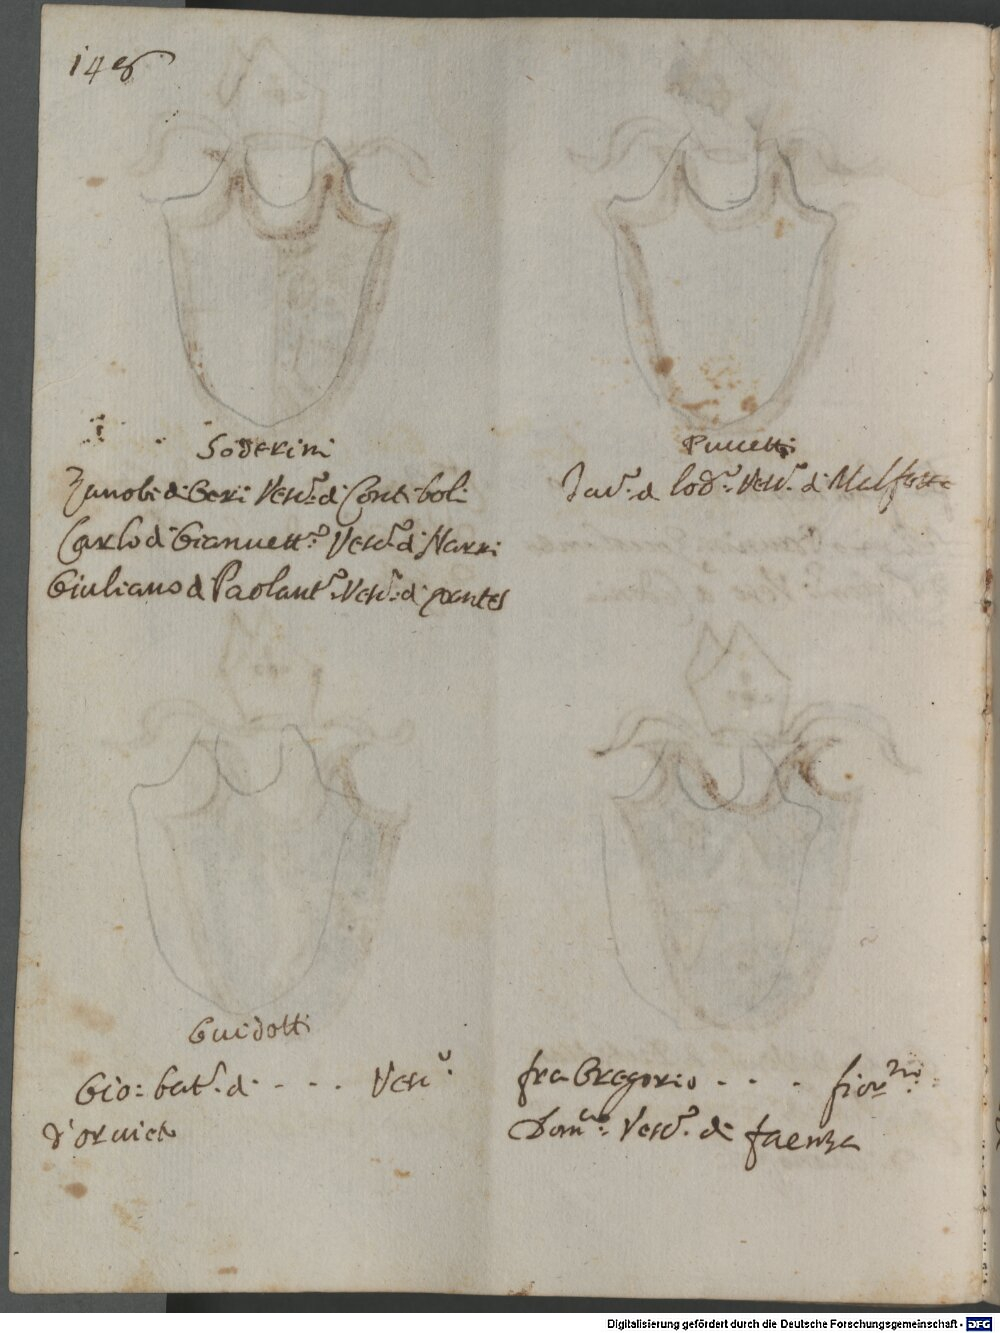 148
Soderini
Zanobi di Geri Vesc.º di Conti boli
Carlo di Giannett.º Vesc.º di Narni
Giuliano d Paolant.º Vesc.º di xantes
Puccetti
d Lod.º Vesc.º di Malfetta
Guidotti
Gio: bat.ª d - - - Vesc.º
d'orvieto
fra Gregorio - - - fior.no
Dom.no Vesc.º di faenza
Digitalisierung gefördert durch die Deutsche Forschungsgemeinschaft - DFG